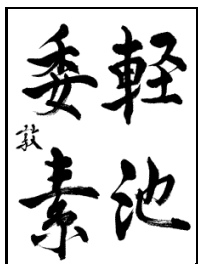 軽池
委素
敦